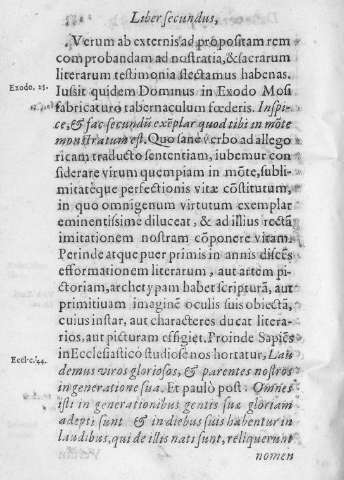 Liber secundus,
Verum ab externis ad propositam rem
comprobandam ad nostratia, & sacrarum
literarum testimonia flectamus habenas.
Exodo. 25.
Iussit quidem Dominus in Exodo Mosi
fabricaturo tabernaculum fœderis. Inspi-
ce, & fac secundũ exẽplar quod tibi in mõte
monstratum est. Quo sane verbo ad allego
ricam traducto sententiam, iubemur con
siderare virum quempiam in mõte, subli-
mitatẽque perfectionis vitæ cõstitutum,
in quo omnigenum virtutum exemplar
eminentissime diluceat, & ad illius rectã
imitationem nostram cõponere vitam.
Perinde atque puer primis in annis discẽs
efformationem literarum, aut artem pi-
ctoriam, archetypam habet scripturã, aut
primitiuam imaginẽ oculis suis obiectã,
cuius instar, aut characteres ducat litera-
rios, aut picturam effigiet. Proinde Sapiẽs
Eccle. 44.
in Ecclesiastico studiose nos hortatur, Lau
demus viros gloriosos, & parentes nostros
in generatione sua. Et paulò post. Omnes
isti in generationibus gentis suæ gloriam
adepti sunt & in diebus suis habentur in
laudibus, qui de illis nati sunt, reliquerunt
nomen